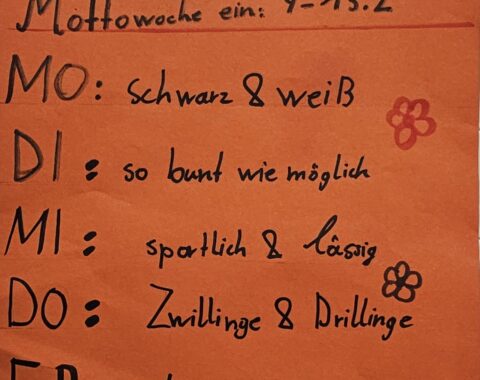 Mottowoche ein: 9-13.2
MO: schwarz & weiß
DI: so bunt wie möglich
MI: sportlich & lässig
DO: Zwillinge & Drillinge